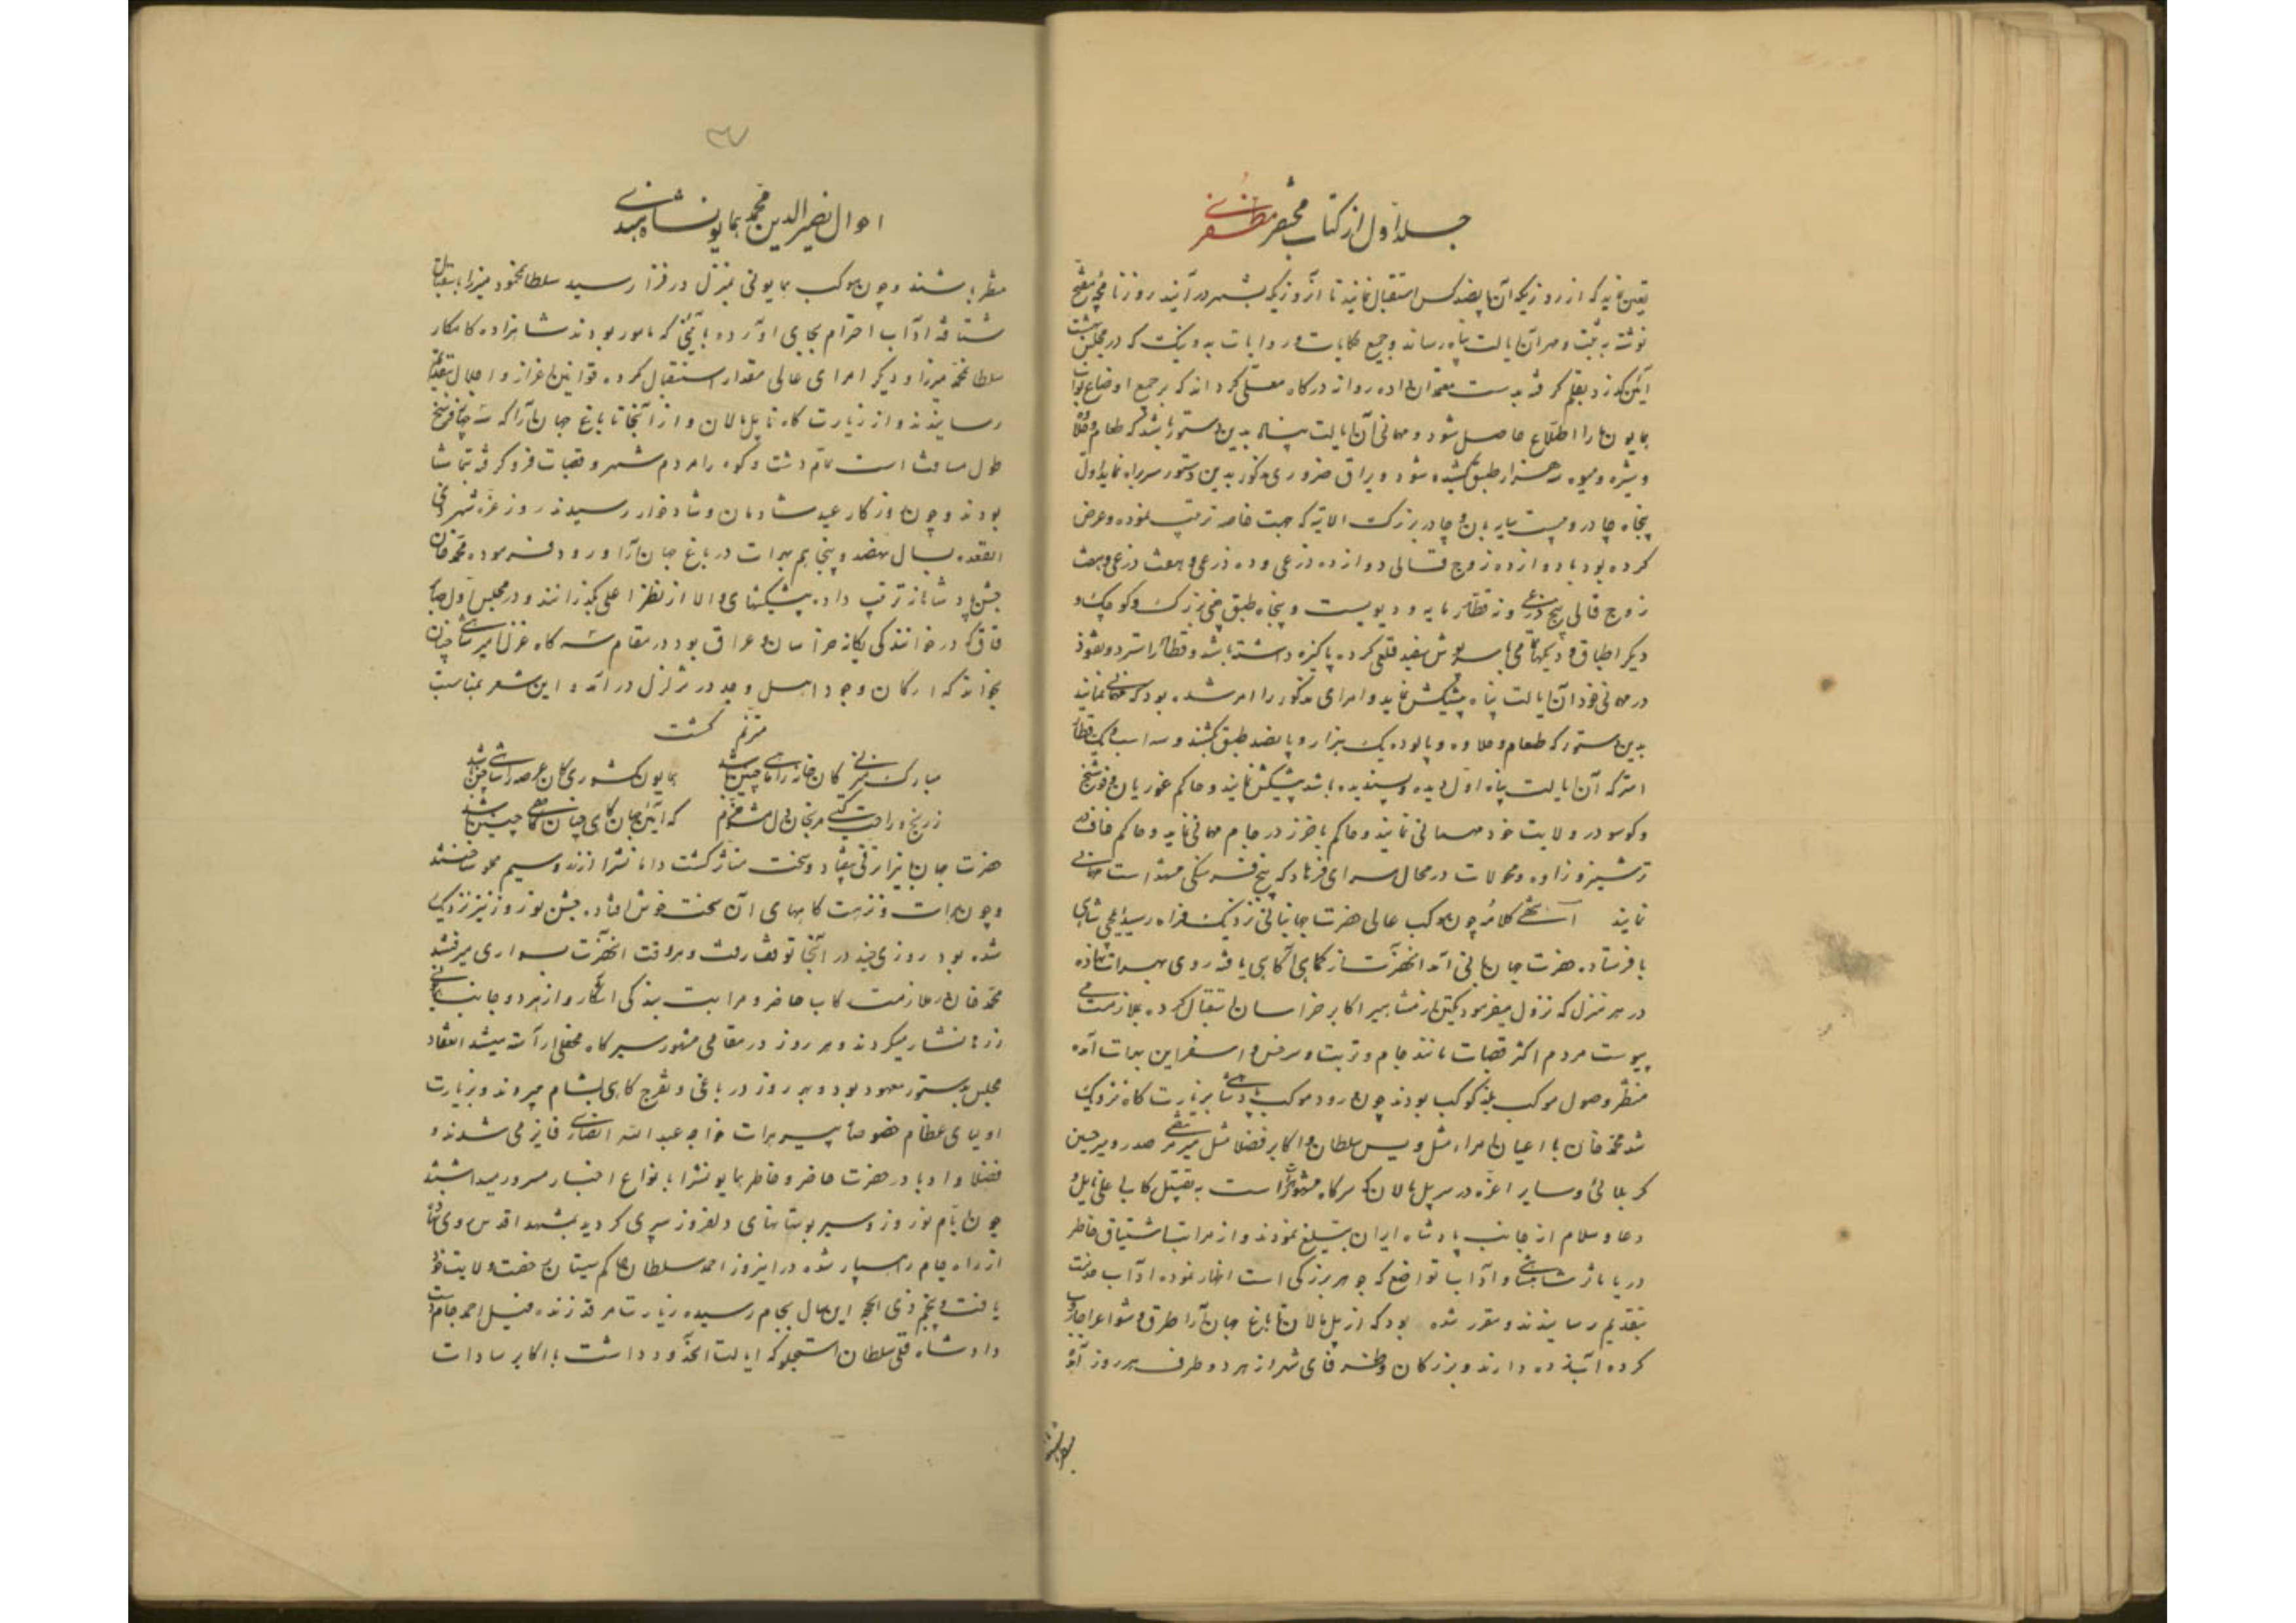 جلد اول از کتاب مختصر مظفری
تعین نماید که از روزیکه آن پانصد کس استقبال نمایند تا آنروزیکه بشهر در آیند روزنامچه مشرح
نوشته به ثبت و مهر آن ایالت پناه رساند و جمیع حکایات و روایات بد و نیک که در مجلس بهشت
آئین گذرد بقلم گرفته بدست معتمدان داده روانه درگاه معلی گرداند که بر جمیع اوضاع نواب
همایون ما را اطلاع حاصل شود و مهمانی آن ایالت پناه بدین دستور باشد که طعام و حلاوه
و شیره و میوه سه هزار طبق کشیده شود و یراق ضروری مذکور بدین دستور سربراه نماید اول
پنجاه چادر و بیست سایه بان و چادر بزرگ الایه که جهت خاصه ترتیب نموده و عرض
کرده بود با دوازده زوج قالی دوازده ذرعی و ده ذرعی و هفت ذرعی و هفت
زوج قالی پنج ذرعی و نه قطار مایه و دویست و پنجاه طبق چینی بزرگ و کوچک و
دیگر اطباق و دیگهای با سرپوش سفید قلعی کرده پاکیزه داشته باشد و قطار استر و تقوز
در مهمانی خود آن ایالت پناه پیشکش نماید و امرای مذکور را امر شده بود که مهمانی نمایند
بدین دستور که طعام و حلاوه و پالوده یک هزار و پانصد طبق کشند و سه اسب و یک قطار
استر که آن ایالت پناه اول دیده و پسندیده باشد پیشکش نمایند و حاکم غوریان و فوشنج
و کوسو در ولایت خود مهمانی نمایند و حاکم باخرز در جام مهمانی نماید و حاکم خاف و
ترشیز و زاوه و محولات در محال سرای فرهاد که پنج فرسنگی مشهد است مهمانی
نمایند انتهی کلامه چون موکب عالی حضرت جهانبانی نزدیک فراه رسید ایلچی شاهی
با فرستاده حضرت جهانبانی آمد آنحضرت از کماهی آگاهی یافته روی بهرات نهاده
در هر منزل که نزول میفرمود یکی از مشاهیر اکابر خراسان استقبال کرده بملازمت می
پیوست مردم اکثر قصبات مانند جام و تربت و سرخس و اسفراین بهرات آمده
منتظر وصول موکب بلند کوکب بودند چون ورود موکب پادشاهی بزیارت گاه نزدیک
شد محمد خان با اعیان امراء مثل ویس سلطان و اکابر فضلا مثل میر مرتضی صدر و میر حسین
کربلائی و سایر اعزه در سر پل مالان که سرگاه مشهور است به تقبیل رکاب
دعا و سلام از جانب پادشاه ایران تبلیغ نمودند و از مراتب اشتیاق خاطر
دریا بار شاهنشاهی و آداب تواضع که جوهر بزرگی است اظهار نموده آداب خدمت
بتقدیم رسانیدند و مقرر شده بود که از پل مالان تا باغ جهان آرا طرق و شوارع را جاروب
کرده آب زده دارند و بزرگان و ظرفای شهر از هر دو طرف هر روز آمده
منتظر باشند
۳۷
احوال نصیر الدین محمد همایون شاه هندی
منتظر باشند و چون موکب همایونی بمنزل در قرا رسید سلطان محمود میرزا باستقبال
شتافته آداب احترام بجای آورده بآئینی که مامور بودند شاهزاده کامکار
سلطان محمد میرزا و دیگر امرای عالی مقدار استقبال کرده قوانین اعزاز و اجلال بتقدیم
رسانیدند و از زیارت گاه تا پل مالان و از آنجا تا باغ جهان آرا که سه چهار فرسخ
طول مسافت است تمام دشت و کوه را مردم شهر و قصبات فرو گرفته تماشا
بودند و چون روزگار عید شادمان و شادخوار رسیدند روز غره شهر ذی
القعده بسال نهصد و پنجاهم بهرات در باغ جهان آرا ورود فرموده محمد خان
جشن پادشاهانه ترتیب داده پیشکشهای والا از نظر اعلی گذرانند و در مجلس اول صابر
قاق که در خوانندگی یگانه خراسان و عراق بود در مقام سه گاه غزل امیر شاهی چنان
بخواند که ارکان وجود اهل وجد در تزلزل در آمد و این شعر بمناسبت
مترنم گشت
مبارک منزلی کان خانه را ماهی چنین باشد همایون کشوری کان عرصه را شاهی چنین باشد
ز رنج و راحت گیتی مرنجان دل مشو خرم که آئین جهان گاهی چنان گاهی چنین باشد
حضرت جهانبانرا رقتی بیفتاد و سخت متأثر گشت دامانش را از زر و سیم
و چون هرات و نزهت گاههای آن سخت خوش افتاد جشن نوروز نیز نزدیک
شده بود روزی چند در آنجا توقف رفت و هر وقت آنحضرت بسواری میرفتند
محمد خان ملازمت رکاب حاضر و مراتب بندگی آشکار و از هر دو جانب
زرها نثار میکردند و هر روز در مقامی مشهور سیرگاه محفلی آراسته میشد انعقاد
مجلس بدستور معهود بود و هر روز در باغی و تفرج گاهی بشام میبردند و بزیارت
اولیای عظام خصوصا پیر هرات خواجه عبد الله انصاری فایز می شدند و
فضلا و ادبا در حضرت حاضر و خاطر همایونش را بانواع اخبار مسرور میداشتند
چون ایام نوروز و سیر بوستانهای دلفروز سپری گردید بمشهد اقدس روی نهاد
از راه جام رهسپار شده در اینروز احمد سلطان حاکم سیستان رخصت ولایت خود
یافت و پنجم ذی الحجه این سال بجام رسیده زیارت مرقد زنده فیل احمد جام
داد شاه قلی سلطان استجلو که ایالت آنحدود داشت با اکابر سادات